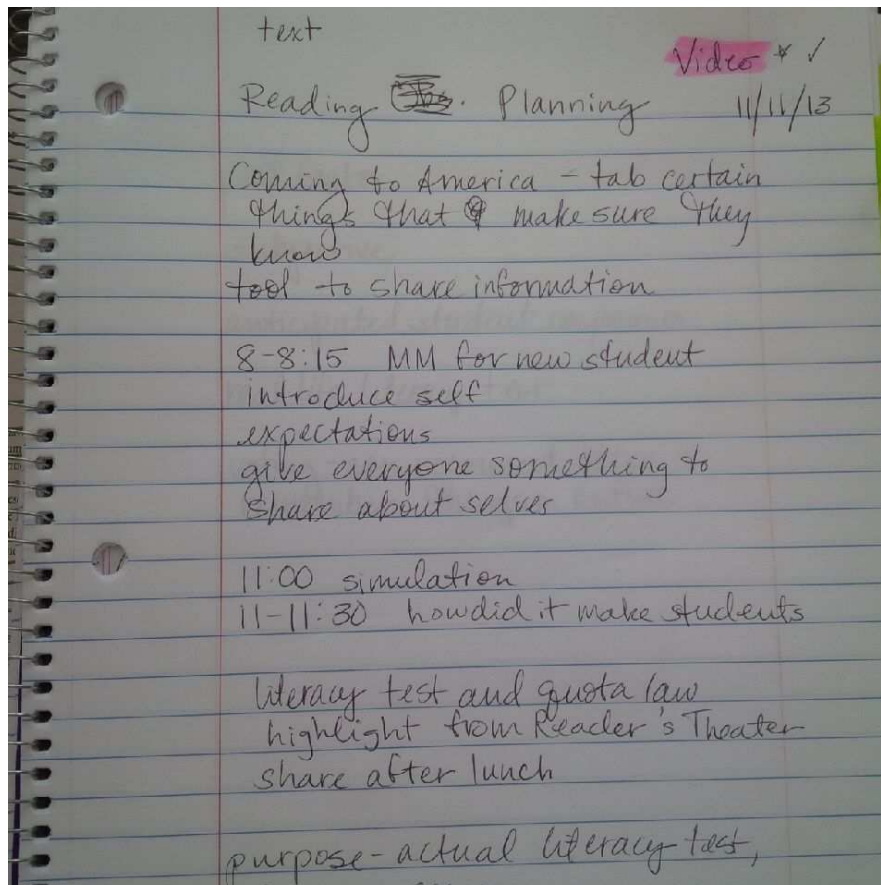 text
Video * ✓
Reading Planning 11/11/13
Coming to America - tab certain
things that make sure they
know
tool to share information
8-8:15 MM for new student
introduce self
expectations
give everyone something to
share about selves
11:00 simulation
11-11:30 how did it make students
literacy test and quota law
highlight from Reader's Theater
share after lunch
purpose - actual literacy test,